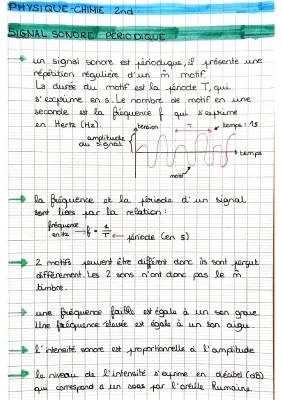 PHYSIQUE-CHIMIE 2nd
SIGNAL SONORE PÉRIODIQUE
un signal sonore est périodique, il présente une
répétition régulière d'un m̂ motif.
La durée du motif est la période T, qui
s'exprime en s. Le nombre de motif en une
seconde est la fréquence f qui s'exprime
en Hertz (Hz).
tension
T
temps = 1s
amplitude
du signal
temps
motif
la fréquence et la période d'un signal
sont liées par la relation :
fréquence
en Hz → f = 1/T ← période (en s)
2 motifs peuvent être différent donc ils sont perçut
différement. Les 2 sons n'ont donc pas le m̂
timbre.
une fréquence faible est égale à un son grave
Une fréquence élevée est égale à un son aigu.
l'intensité sonore est proportionnelle à l'amplitude
le niveau de l'intensité s'exprime en décibel (dB)
qui correspond à un sons par l'oreille humaine.